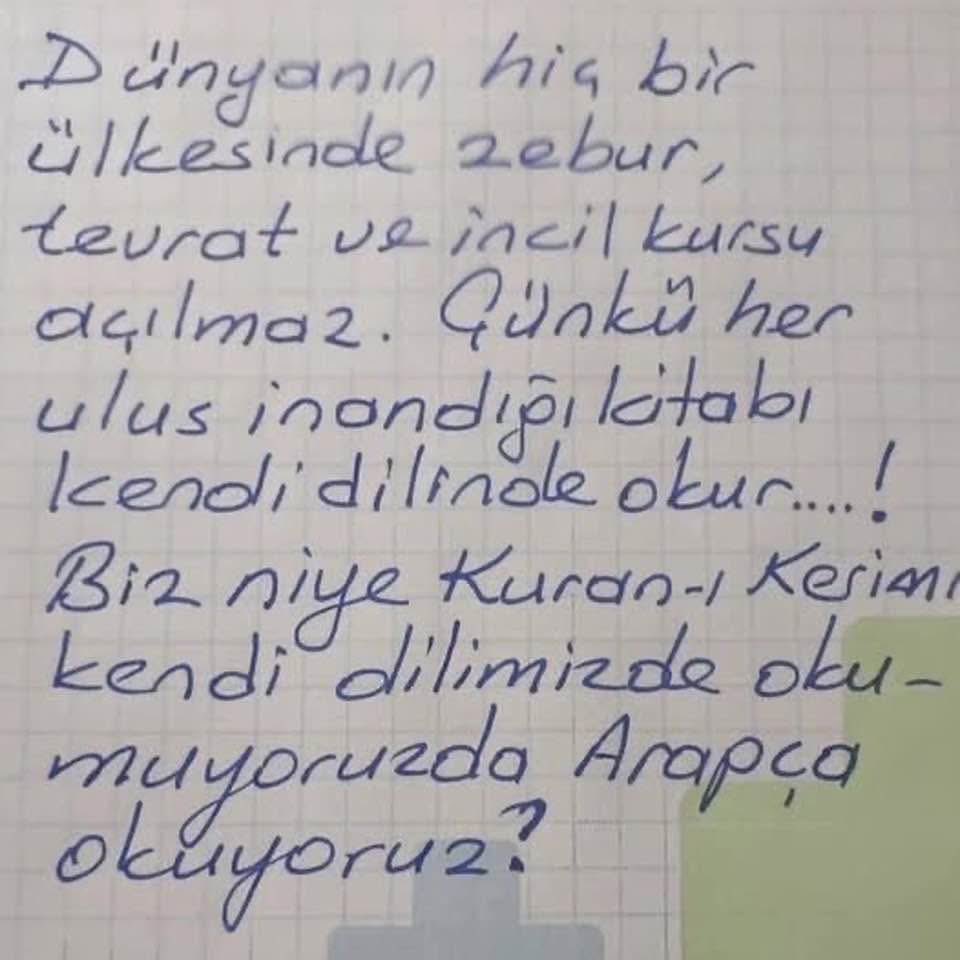 Dünyanın hiç bir
ülkesinde zebur,
tevrat ve incil kursu
açılmaz. Çünkü her
ulus inandığı kitabı
kendi dilinde okur....!
Biz niye Kuran-ı Kerimi
kendi dilimizde oku-
muyoruzda Arapça
okuyoruz?